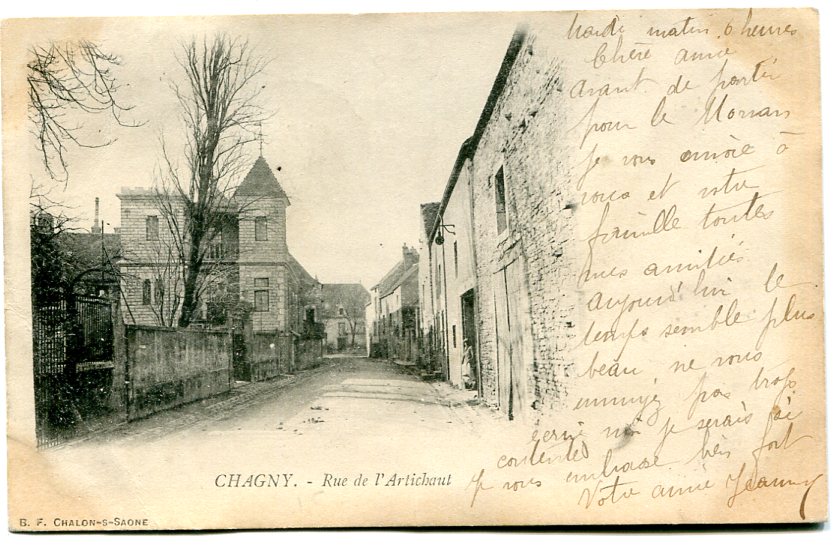 Mardi matin 6 heures
Chère amie
avant de partir
pour le Morvan
je vous envoie à
vous et votre
famille toutes
mes amitiés
aujourd'hui le
temps semble plus
beau ne vous
ennuyez pas trop
ecrivé moi je serais
contente
Je vous embrasse bien fort
Votre amie Jeanny
CHAGNY. - Rue de l'Artichaut
B. F. CHALON-S-SAONE